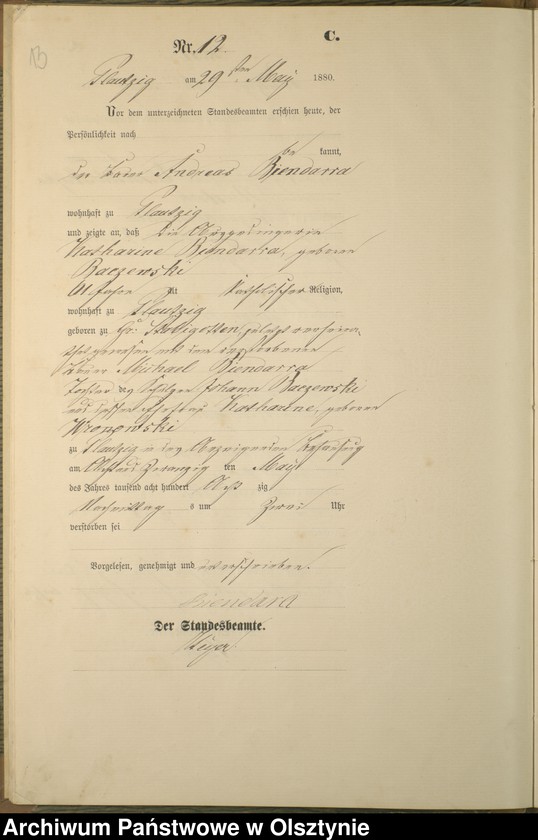 C.
Nr. 12.
Plautzig am 29sten May 1880.
Vor dem unterzeichneten Standesbeamten erschien heute, der
Persönlichkeit nach
be kannt,
der Andreas Biendarra
wohnhaft zu Plautzig
und zeigte an, daß die
Katharine Biendarra, geborene
Raczewski
61 Jahre alt Katholischer Religion,
wohnhaft zu Plautzig
geboren zu Gr:
mit dem verstorbenen
Michael Biendarra
Tochter des Johann Raczewski
und dessen Ehefrau Katharine, geborene
Wronowski
zu Plautzig in des Behausung
am Acht und Zwanzig ten May
des Jahres tausend acht hundert Acht zig
Nachmittag s um Zwei Uhr
verstorben sei
Vorgelesen, genehmigt und unterschrieben.
Biendara
Der Standesbeamte.
Archiwum Państwowe w Olsztynie